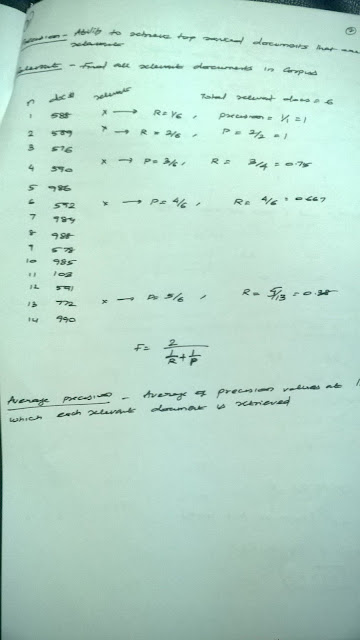 Precision - Ability to retrieve top ranked documents that are
relevant
- Find all relevant documents in Corpus
n doc # relevant Total relevant docs = 6
1 588 x → R = 1/6, precision = 1/1 = 1
2 589 x → R = 2/6, P = 2/2 = 1
3 576
4 590 x → P = 3/6, R = 3/4 = 0.75
5 986
6 592 x → P = 4/6, R = 4/6 = 0.667
7 984
8 988
9 578
10 985
11 103
12 591
13 772 x → P = 5/6, R = 5/13 = 0.38
14 990
F = 2 / (1/R + 1/P)
Average precision - Average of precision values at
which each relevant document is retrieved